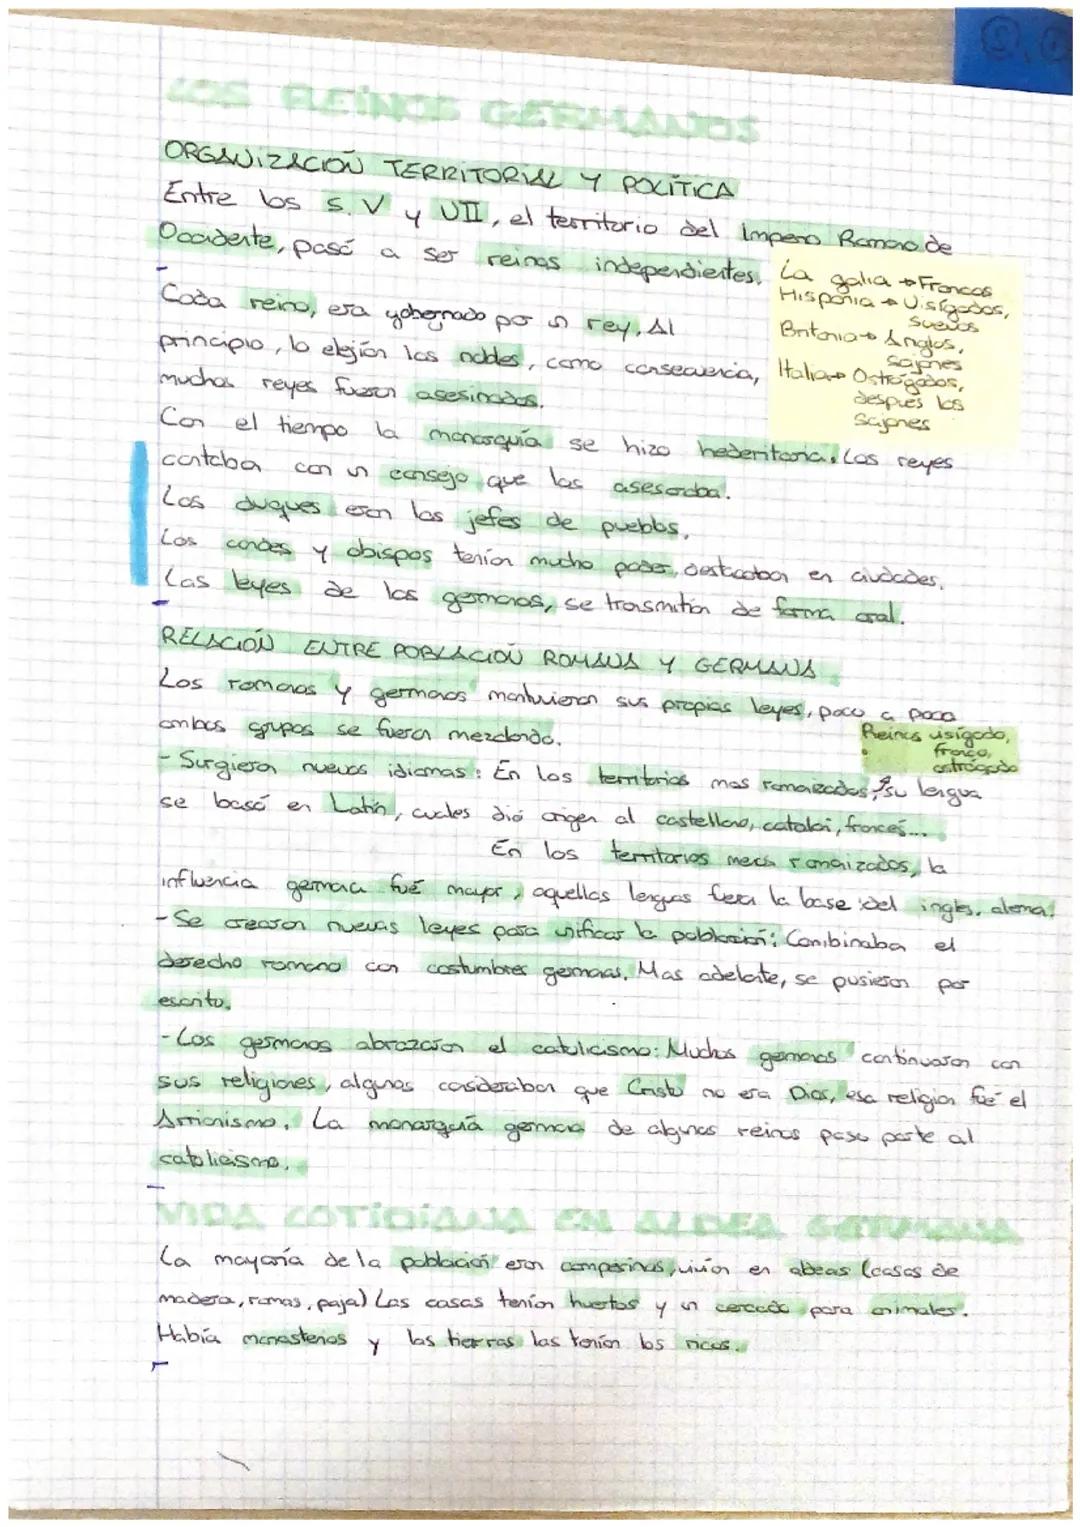 LOS REINOS GERMANOS
ORGANIZACIÓN TERRITORIAL Y POLÍTICA
Entre los s. V y VII, el territorio del Impero Romano de
Occidente, pasó a ser reinos independientes.
La galia → Francos
Hisponia → Visigodos,
suevos
Britania → Anglos,
sajones
Italia → Ostrogodos,
después los
sajones
Cada reino, era gobernado por un rey. Al
principio, lo elejían los nobles, como consecuencia,
muchos reyes fueron asesinados.
Con el tiempo la monarquía se hizo hederitaria. Los reyes
contaban con un consejo que los asesoraba.
Los duques eran los jefes de pueblos.
Los condes y obispos tenían mucho poder, destacaban en ciudades.
Las leyes de los germanos, se transmitían de forma oral.
RELACIÓN ENTRE POBLACIÓN ROMANA Y GERMANA
Los romanos y germanos mantuvieron sus propias leyes, poco a poco
ambos grupos se fueron mezclando.
Reinos visigodo,
franco,
ostrogodo
- Surgieron nuevos idiomas: En los territorios mas romanizados, su lengua
se basó en Latín, cuales dió origen al castellano, catalán, francés...
En los territorios menos romanizados, la
influencia germana fué mayor, aquellas lenguas fueron la base del ingles, aleman.
- Se crearon nuevas leyes para unificar la población: Combinaban el
derecho romano con costumbres germanas. Mas adelante, se pusieron por
escrito.
- Los germanos abrazaron el catolicismo: Muchos germanos continuaron con
sus religiones, algunos consideraban que Cristo no era Dios, esa religion fué el
Arrianismo. La monarquía germana de algunos reinos paso parte al
catolicismo.
VIDA COTIDIANA EN ALDEA GERMANA
La mayoría de la población eran campesinos, vivían en aldeas (casas de
madera, ramas, paja) Las casas tenían huertos y un cercado para animales.
Había monasterios y las tierras las tenían los ricos.